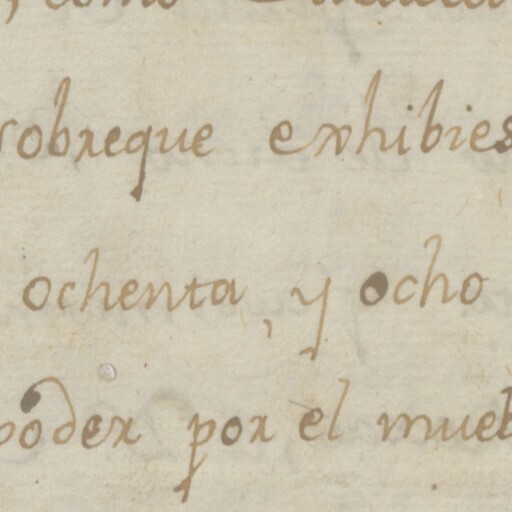 como
sobreque exhibies
ochenta, y ocho
poder por el mueb